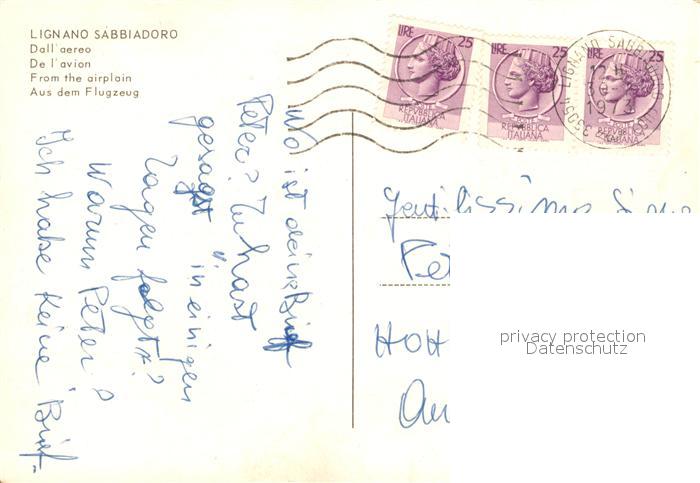 LIGNANO SABBIADORO
Dall'aereo
De l'avion
From the airplain
Aus dem Flugzeug
LIRE 25
POSTE
REPVBBLICA
ITALIANA
LIRE 25
POSTE
REPVBBLICA
ITALIANA
LIRE 25
REPVBBLICA
ITALIANA
LIGNANO SABBIADORO
33054
Wo ist deine Brief
Peter? Du hast
gesagst "in einigen
Tagen folgt"?
Warum Peter?
Ich habe keine Brief
Gentilissimo
HOH
privacy protection
Datenschutz